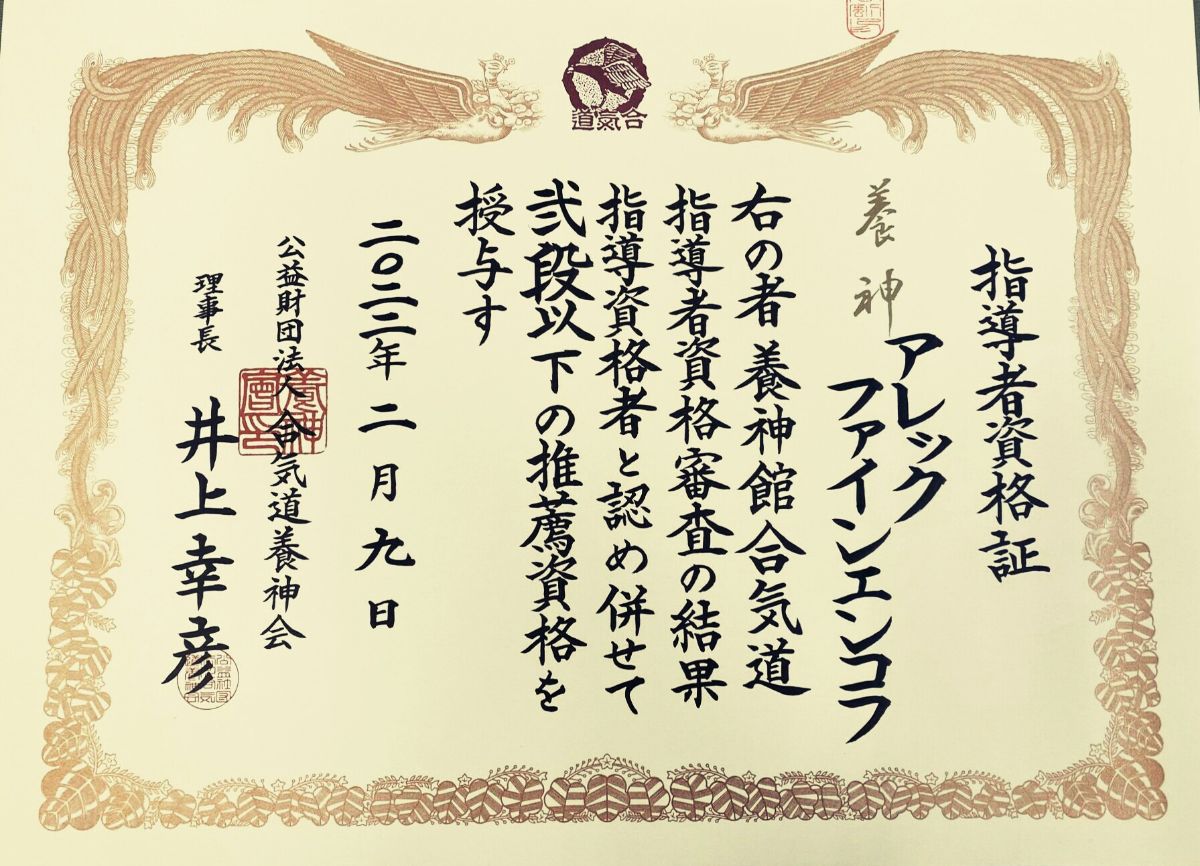 合氣道
指導者資格証
養神
アレック
ファインエンコラ
右の者養神館合気道
指導者資格審査の結果
指導資格者と認め併せて
弐段以下の推薦資格を
授与す
二〇二二年二月九日
公益財団法人合気道養神会
理事長 井上幸彦